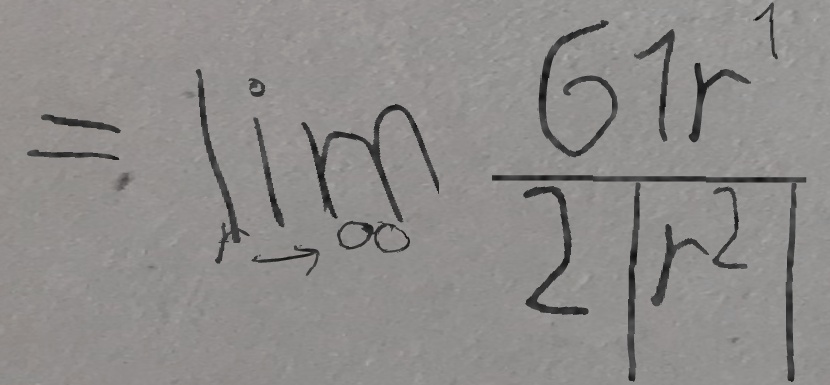 = lim_{r → ∞} \frac{61r^1}{2|r^2|}